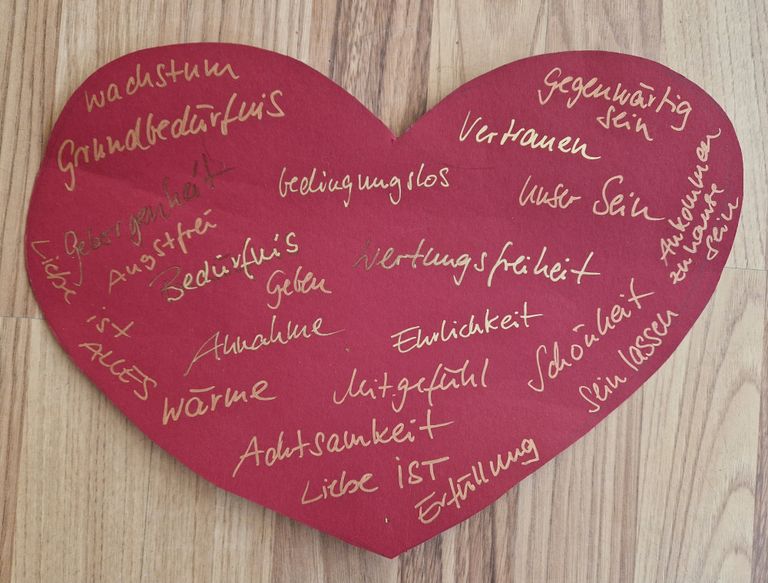 Wachstum
Grundbedürfnis
Geborgenheit
Angstfrei
Bedürfnis
Geben
Liebe
ist
ALLES
Annahme
Wärme
bedingungslos
Gegenwärtig
sein
Vertrauen
Unser Sein
Ankommen
zu hause
sein
Wertungsfreiheit
Ehrlichkeit
Schönheit
Sein lassen
Mitgefühl
Achtsamkeit
Liebe IST
Erfüllung